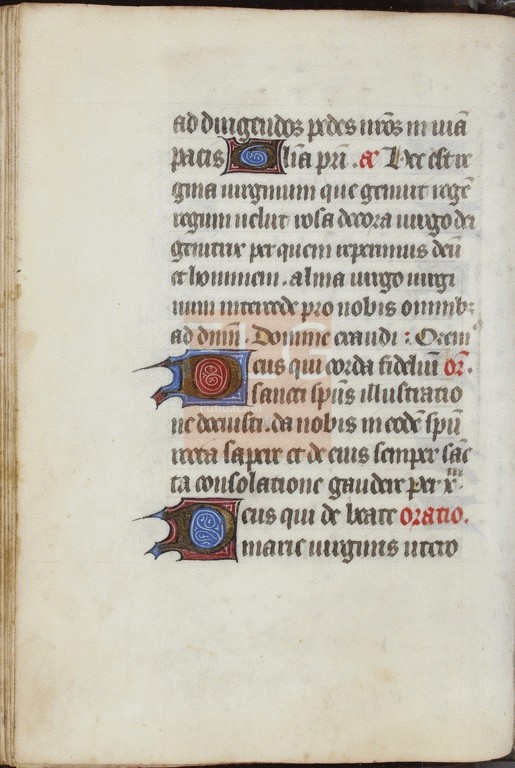 ad dirigendos pedes nr̄os in viā
pacis Glīa pr̄i . añ Hec est re
gina virginum que genuit regē
regum velut rosa decora virgo dei
genitrix per quem reperimus deū
et hominem . alma virgo virgi
num intercede pro nobis omnibꝫ
ad dn̄m . Domine exaudi : Orem⁹
Deus qui corda fideliū or̄.
sancti sp̄us illustratio
ne docuisti . da nobis in eodē sp̄u
recta sapere et de eius semper sāc
ta consolatione gaudere per xᵐ.
Deus qui de beate oratio.
marie virginis utero